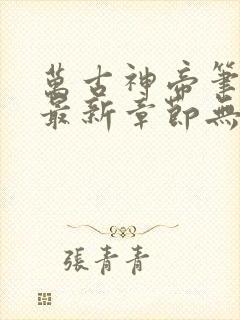 萬古神帝筆
最新章節無
張青青